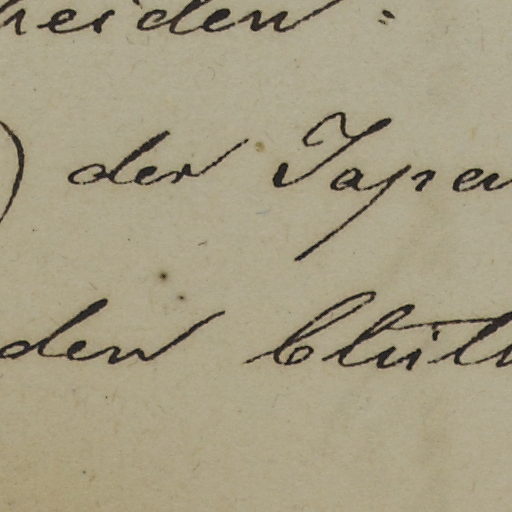 heiden :
) der Japan
den blüth